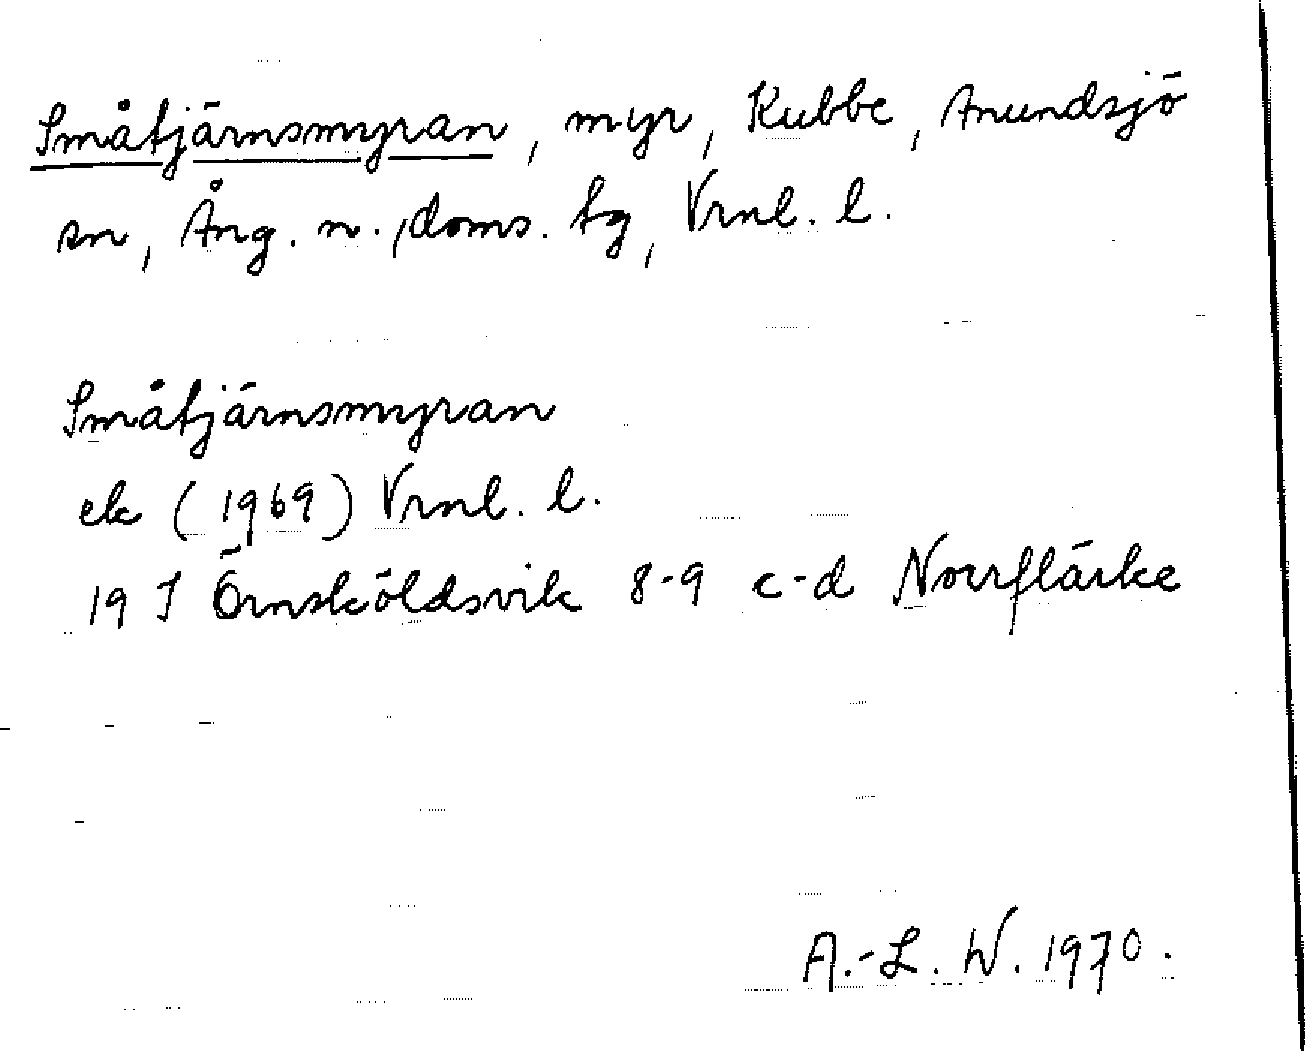 Småtjärnsmyran, myr, Kubbe, Anundsjö
sn, Ång. n., doms. tg, Vrnl. l.
Småtjärnsmyran
ek (1969) Vrnl. l.
19 J Örnsköldsvik 8-9 c-d Norrflärke
A.-L. W. 1970.